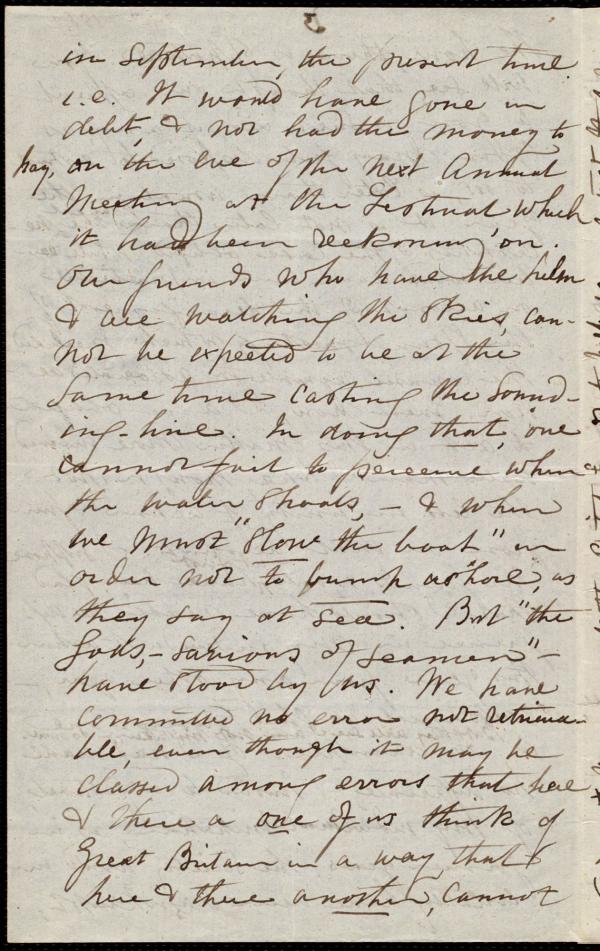 in September, the present time.
i.e. It would have gone in
debt, & not had the money to
pay, on the eve of the next Annual
Meeting at the Festival which
it had been reckoning on.
Our friends who have the helm
& are watching the skies, can-
not be expected to be at the
same time casting the sound-
ing-line. In doing that, one
cannot fail to perceive when
the water shoals, - & when
we must "slow the boat" in
order not to bump ashore, as
they say at sea. But "the
Gods, - saviours of seamen" -
have stood by us. We have
committed no error not retrieva-
ble, even though it may be
classed among errors that here
& there a one of us think of
Great Britain in a way that
here & there another, cannot